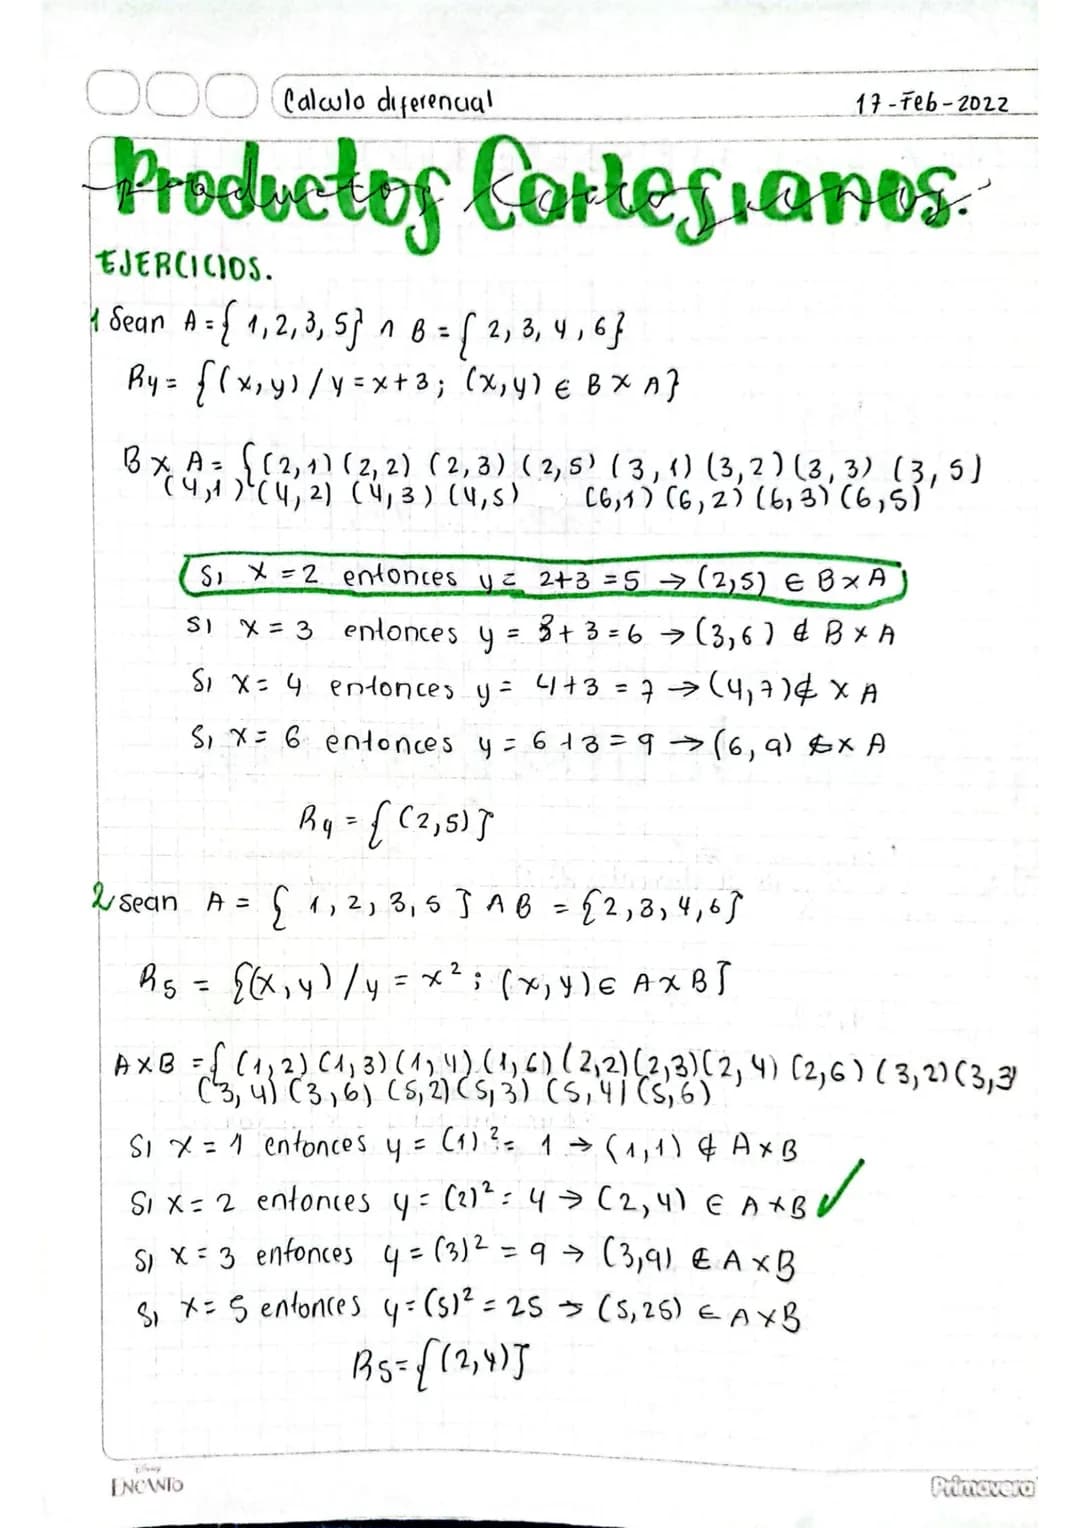 Calculo diferencial
17-Feb-2022
Productos Cartesianos.
EJERCICIOS.
1 Sean A = { 1, 2, 3, 5} ∩ B = { 2, 3, 4, 6}
R4 = {(x, y) / y = x + 3; (x, y) ∈ B X A}
B x A = {(2,1) (2,2) (2,3) (2,5) (3,1) (3,2) (3,3) (3,5)
(4,1) (4,2) (4,3) (4,5) (6,1) (6,2) (6,3) (6,5)
Si x = 2 entonces y = 2+3 = 5 → (2,5) ∈ B x A
Si x = 3 entonces y = 3+3 = 6 → (3,6) ∉ B x A
Si x = 4 entonces y = 4+3 = 7 → (4,7) ∉ x A
Si x = 6 entonces y = 6+3 = 9 → (6,9) ∉ x A
R4 = { (2,5)}
2 Sean A = { 1, 2, 3, 5 } Λ B = {2, 3, 4, 6}
R5 = {(x, y) / y = x²; (x, y) ∈ A X B}
A X B = { (1,2) (1,3) (1,4) (1,6) (2,2) (2,3) (2,4) (2,6) (3,2) (3,3)
(3,4) (3,6) (5,2) (5,3) (5,4) (5,6)
Si x = 1 entonces y = (1)² = 1 → (1,1) ∉ A x B
Si x = 2 entonces y = (2)² = 4 → (2,4) ∈ A x B ✓
Si x = 3 entonces y = (3)² = 9 → (3,9) ∉ A x B
Si x = 5 entonces y = (5)² = 25 → (5,25) ∈ A x B
R5 = {(2,4)}
Disney
ENCANTO
Primavera